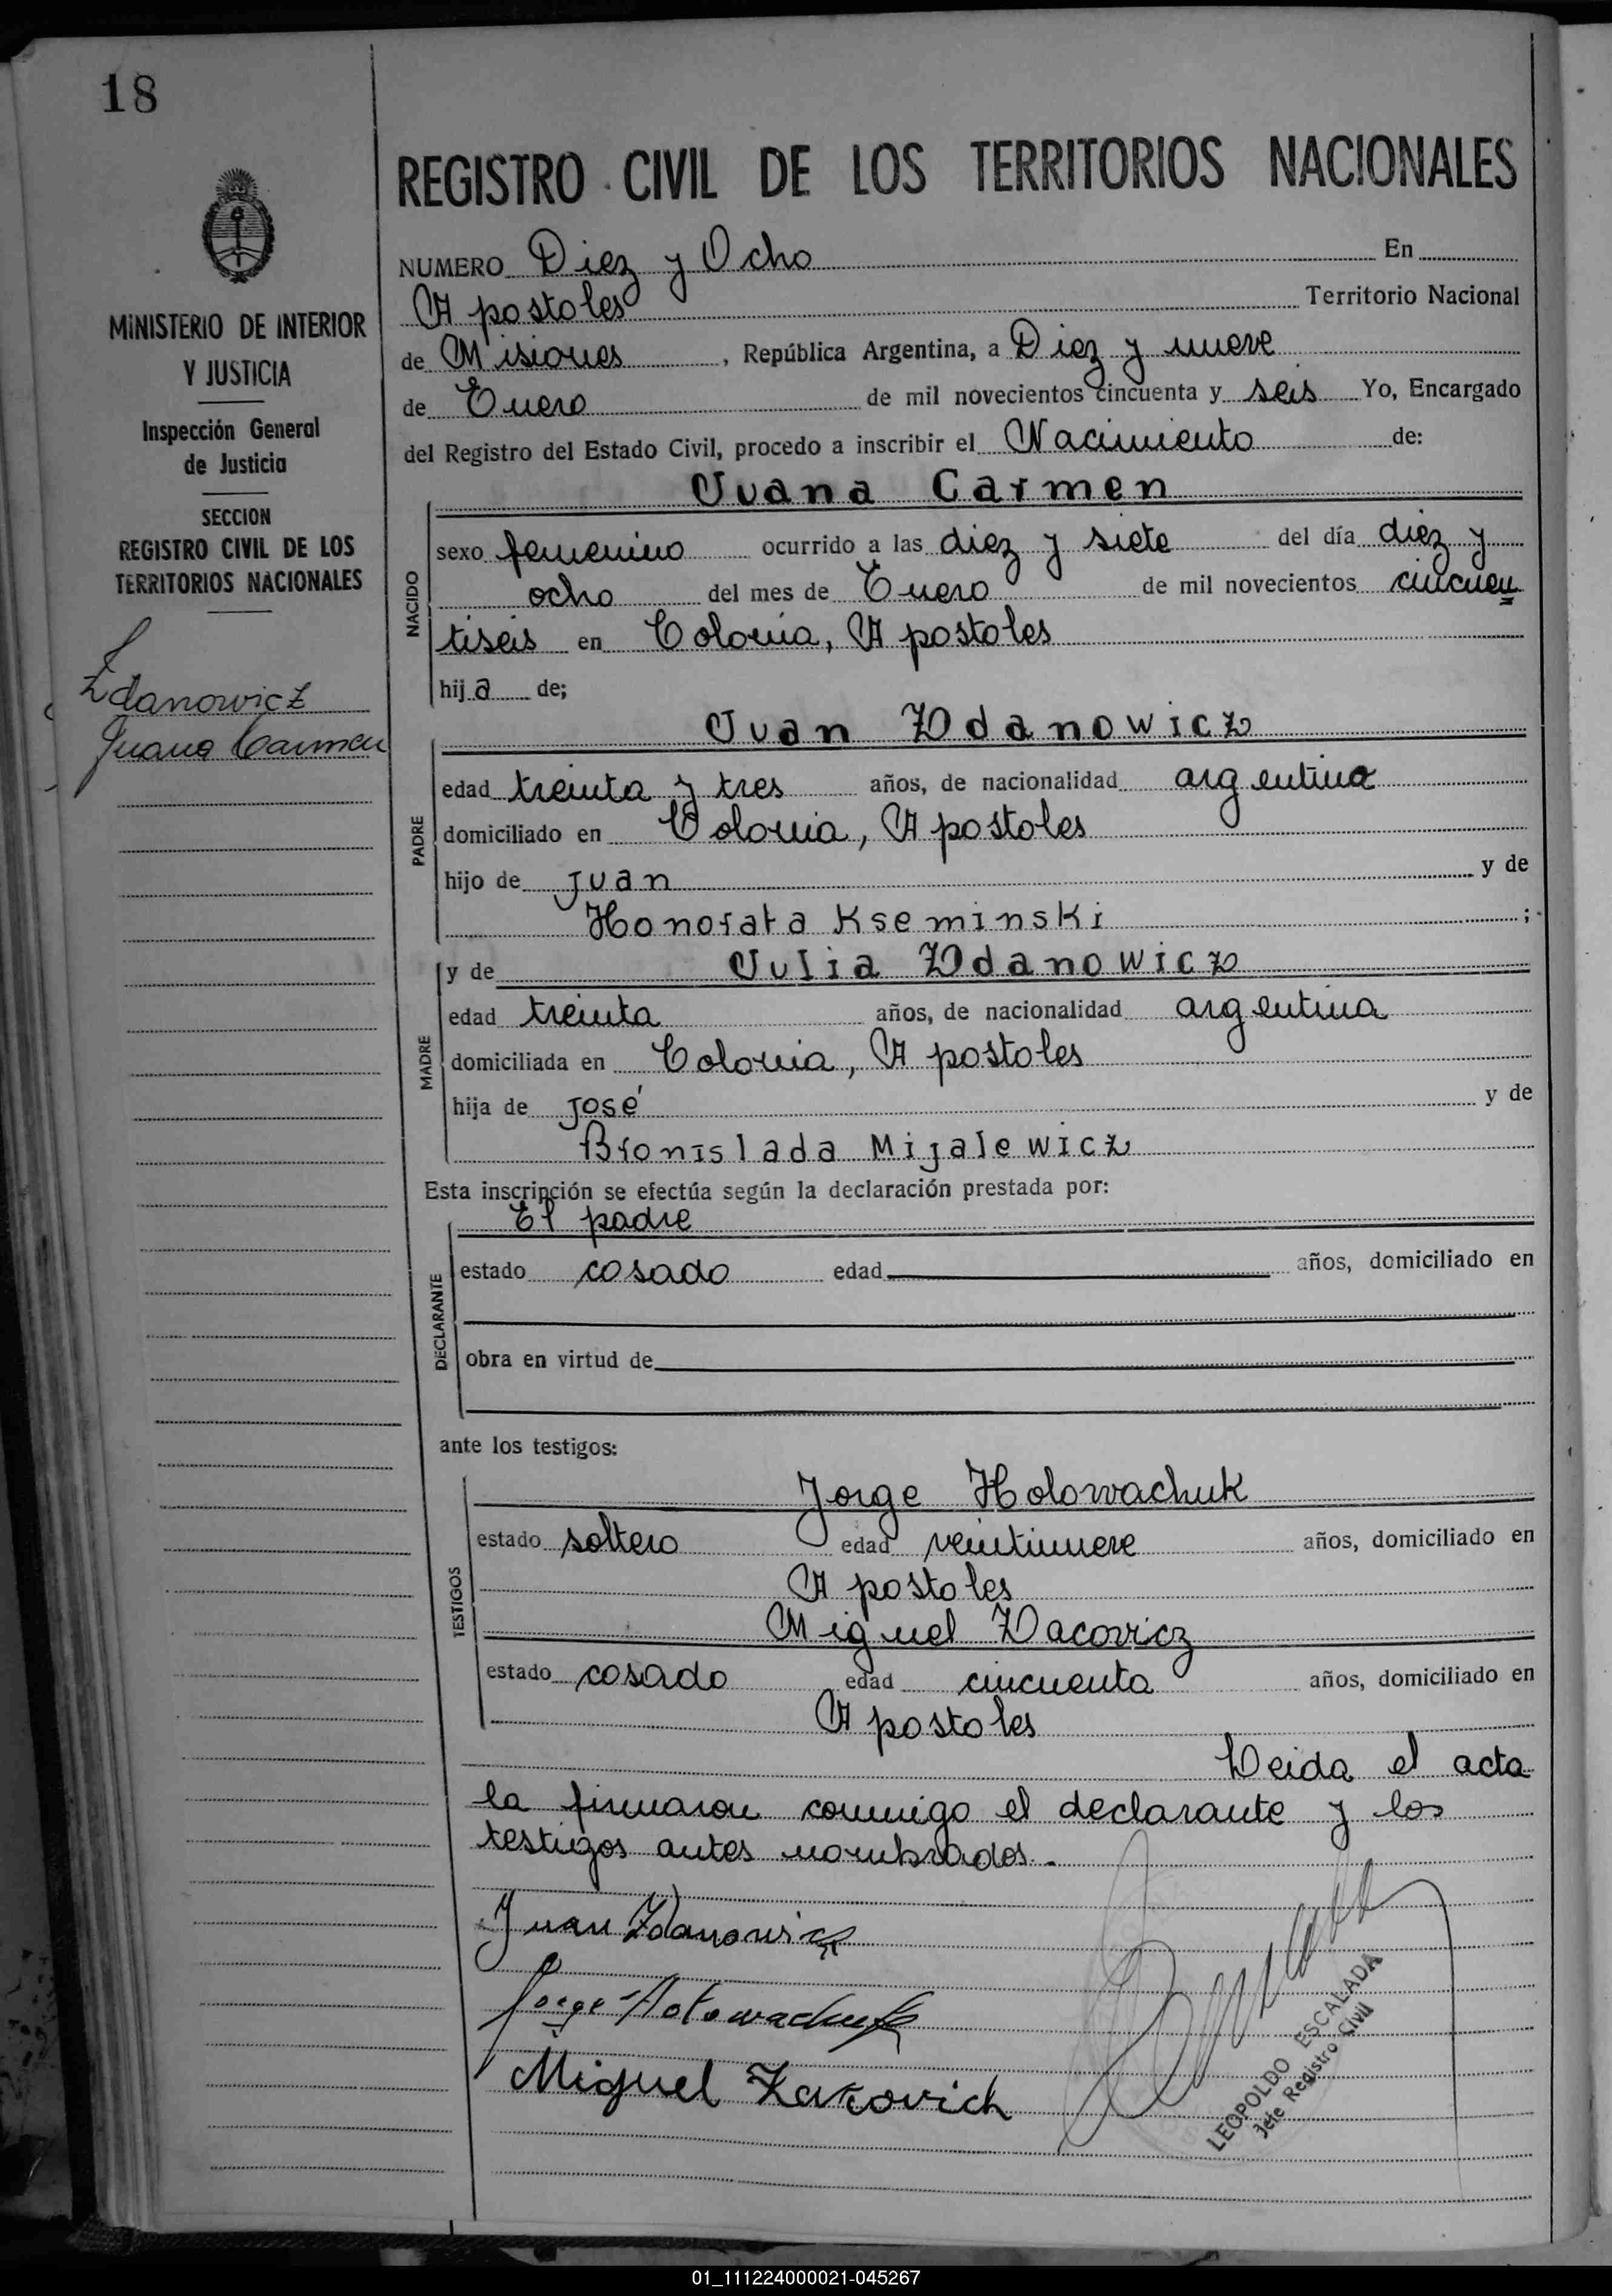 18
MINISTERIO DE INTERIOR
Y JUSTICIA
Inspección General
de Justicia
SECCION
REGISTRO CIVIL DE LOS
TERRITORIOS NACIONALES
Zdanowicz
Juana Carmen
REGISTRO CIVIL DE LOS TERRITORIOS NACIONALES
NUMERO Diez y Ocho En
Apostoles Territorio Nacional
de Misiones, República Argentina, a Diez y nueve
de Enero de mil novecientos cincuenta y seis Yo, Encargado
del Registro del Estado Civil, procedo a inscribir el Nacimiento de:
NACIDO
Juana Carmen
sexo femenino ocurrido a las diez y siete del día diez y
ocho del mes de Enero de mil novecientos cincuen
tiseis en Colonia, Apostoles
hija de;
PADRE
Juan Zdanowicz
edad treinta y tres años, de nacionalidad argentina
domiciliado en Colonia, Apostoles
hijo de Juan y de
Honorata Kseminski ;
MADRE
y de Julia Zdanowicz
edad treinta años, de nacionalidad argentina
domiciliada en Colonia, Apostoles
hija de José y de
Bronislada Mijalewicz
Esta inscripción se efectúa según la declaración prestada por:
DECLARANTE
El padre
estado casado edad años, domiciliado en
obra en virtud de
ante los testigos:
TESTIGOS
Jorge Holowachuk
estado soltero edad veintinueve años, domiciliado en
Apostoles
Miguel Zacovicz
estado casado edad cincuenta años, domiciliado en
Apostoles
Leida el acta
la firmaron conmigo el declarante y los
testigos antes nombrados.
Juan Zdanowicz
Jorge Holowachuk
Miguel Zakovich
LEOPOLDO ESCALADA
Jefe Registro Civil
01_111224000021-045267